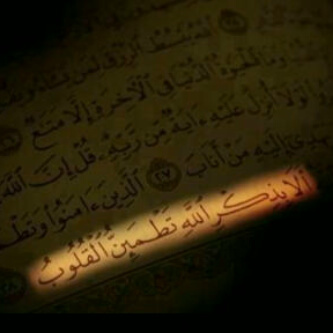 ٱللَّهُ يَبْسُطُ ٱلرِّزْقَ لِمَن يَشَآءُ
وَمَا ٱلْحَيَوٰةُ ٱلدُّنْيَا فِى ٱلْأَخِرَةِ إِلَّا مَتَٰعٌ
لَوْلَآ أُنزِلَ عَلَيْهِ ءَايَةٌ مِّن رَّبِّهِۦ قُلْ إِنَّ ٱللَّهَ
إِلَيْهِ مَنْ أَنَابَ ٢٧ ٱلَّذِينَ ءَامَنُوا۟ وَتَطْ
أَلَا بِذِكْرِ ٱللَّهِ تَطْمَئِنُّ ٱلْقُلُوبُ ٢٨